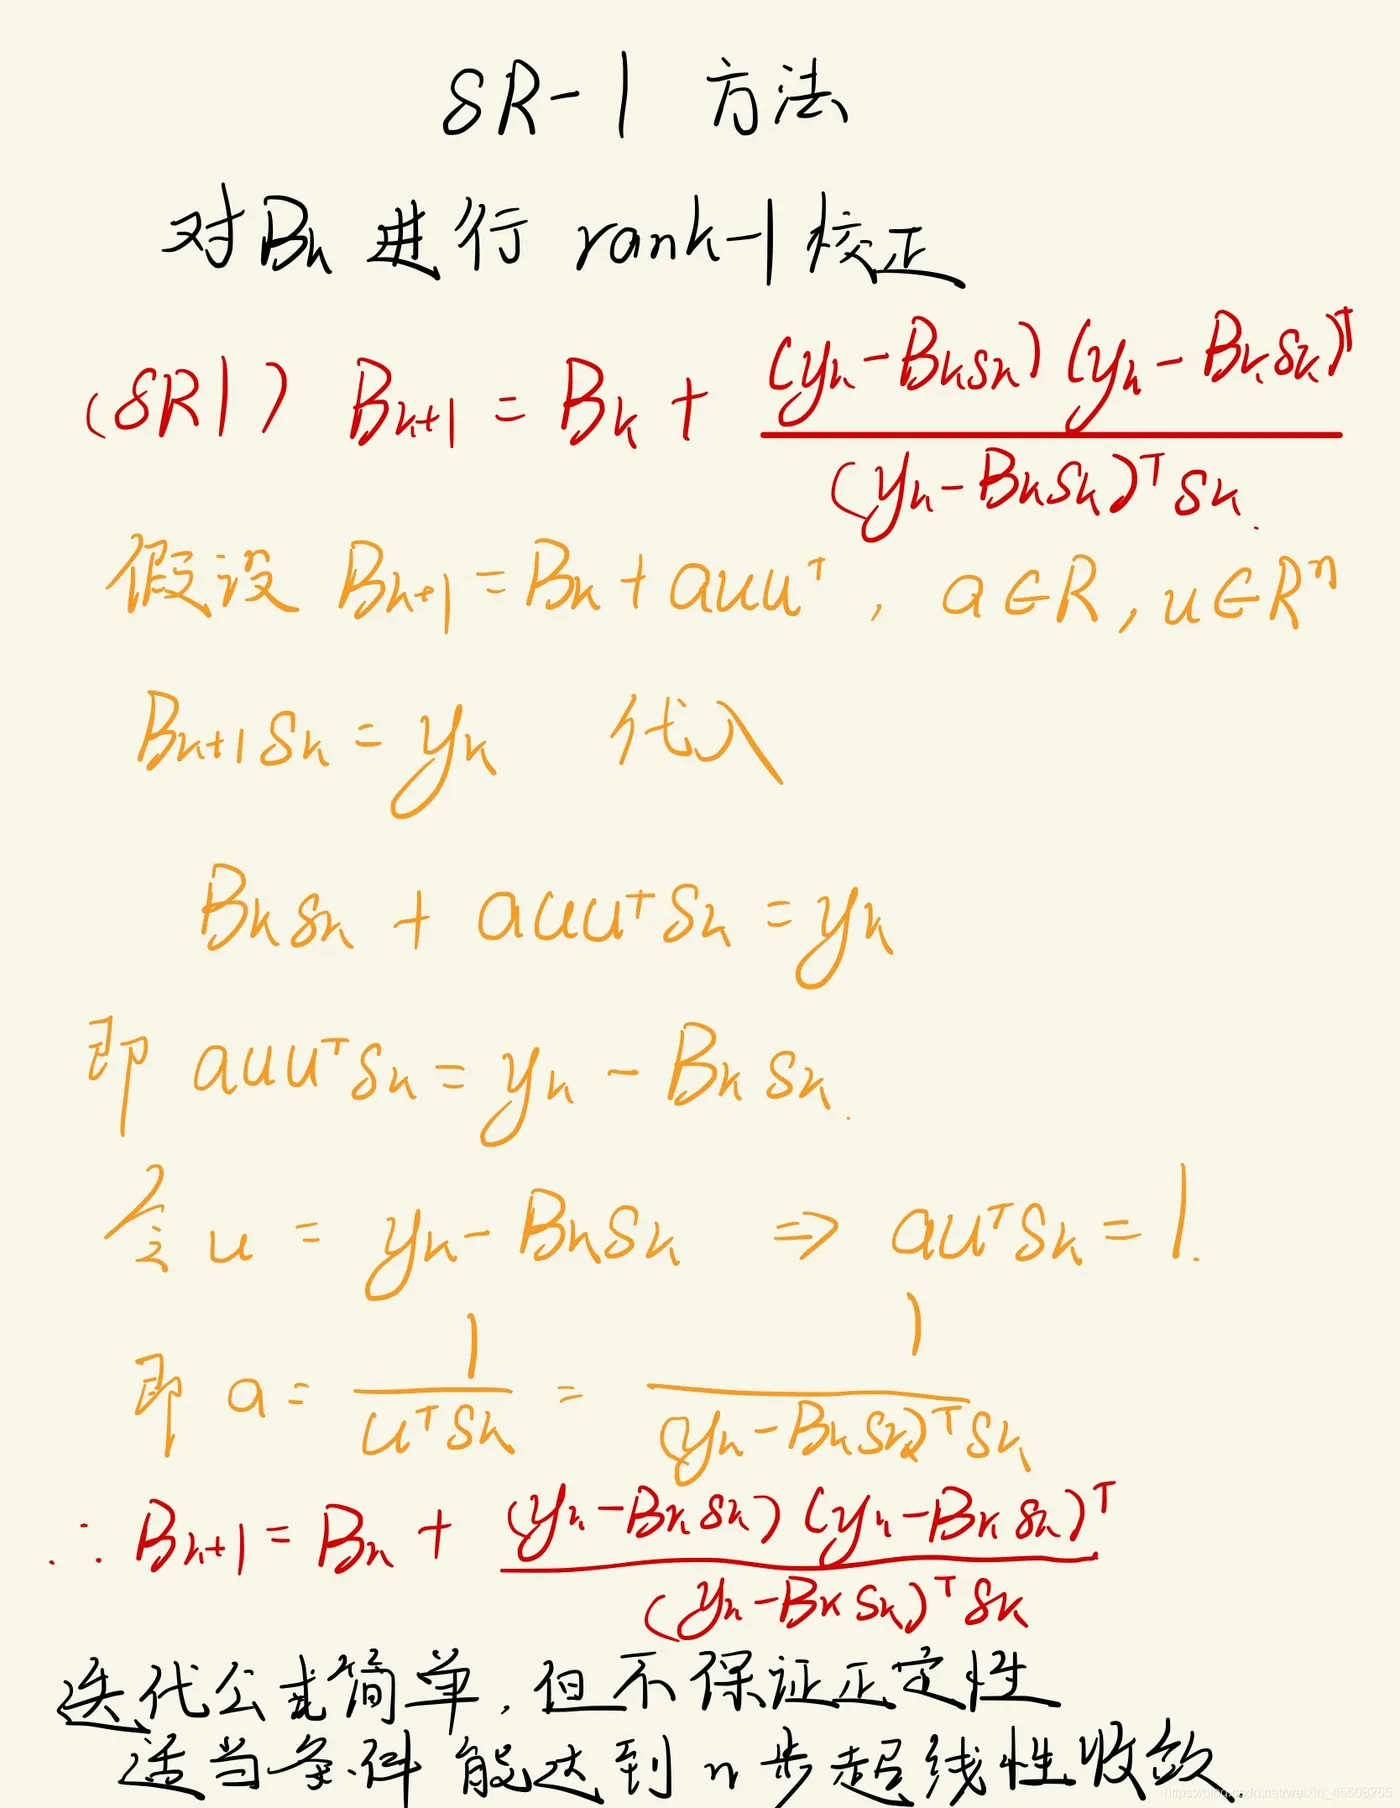 SR-1 方法
对Bk 进行 rank-1校正
(SR1) Bk+1 = Bk + (yk-Bksk)(yk-Bksk)ᵀ / (yk-Bksk)ᵀsk.
假设 Bk+1 = Bk + auuᵀ, a∈R, u∈Rⁿ
Bk+1sk = yk 代入
Bksk + auuᵀsk = yk
即 auuᵀsk = yk - Bksk.
令 u = yk - Bksk ⇒ auᵀsk = 1.
即 a = 1 / uᵀsk = 1 / (yk-Bksk)ᵀsk
∴ Bk+1 = Bk + (yk-Bksk)(yk-Bksk)ᵀ / (yk-Bksk)ᵀsk
迭代公式简单, 但不保证正定性
适当条件能达到n步超线性收敛.
https://blog.csdn.net/weixin_45508265